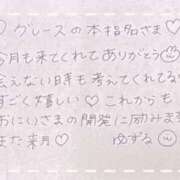 ♡グレースの本指名さま♡
今月も来てくれてありがとう
会えない日時も考えてくれてる
すごく嬉しい♡これからも
おにいさまの開発に励みま
また来月♡ ゆずる